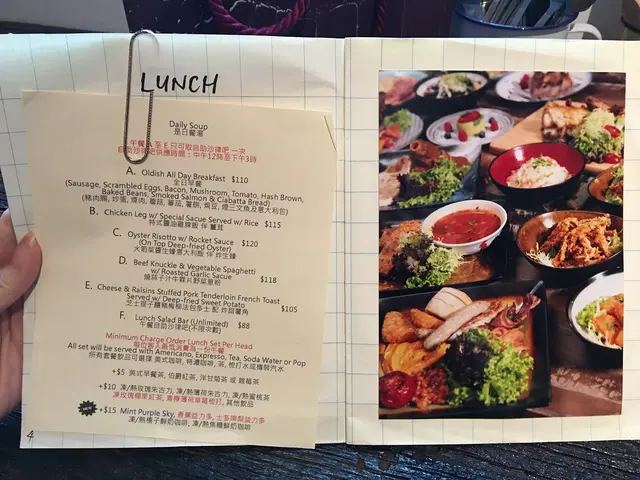 LUNCH
Daily Soup
是日餐湯
午餐 A 至 E 只可取自助沙律吧 一次
自助沙律吧供應時間：中午12時至下午3時
A. Oldish All Day Breakfast $110
全日早餐
(Sausage, Scrambled Eggs, Bacon, Mushroom, Tomato, Hash Brown,
Baked Beans, Smoked Salmon & Ciabatta Bread)
B. Chicken Leg w/ Special Sacue Served w/ Rice $115
C. Oyster Risotto w/ Rocket Sauce $120
(On Top Deep-fried Oyster)
D. Beef Knuckle & Vegetable Spaghetti
w/ Roasted Garlic Sacue $118
E. Cheese & Raisins Stuffed Pork Tenderloin French Toast
Served w/ Deep-fried Sweet Potato $105
F. Lunch Salad Bar (Unlimited) $88
午餐自助沙律吧(不限次數)
Minimum Charge Order Lunch Set Per Head
每位客人最低消費為一份午餐
All set will be served with Americano, Expresso, Tea, Soda Water or Pop
+$5 英式早餐茶, 伯爵紅茶, 洋甘菊茶 或 雜莓茶
+$10 凍/熱玫瑰朱古力, 凍/熱薄荷朱古力, 凍/熱蜜桃茶
其他飲品
+$15 Mint Purple Sky,
凍/熱榛子鮮奶咖啡, 凍/熱焦糖鮮奶咖啡
4